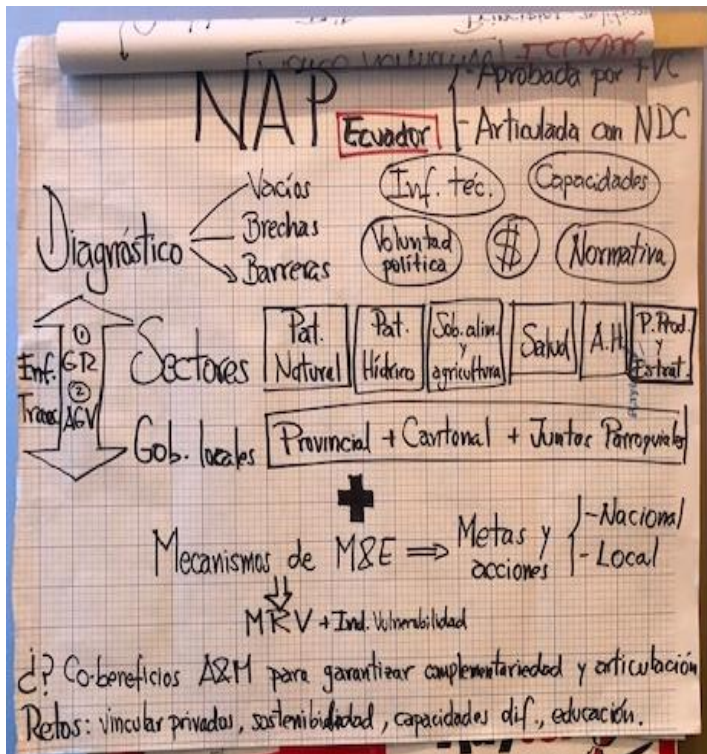 NAP
Ecuador
- Aprobada por
- Articulada con NDC
Diagnóstico
Vacíos
Brechas
Barreras
Inf. téc.
Capacidades
Voluntad política
$
Normativa
Enf.
Trans
① GR
② AGV
Sectores
Pat. Natural
Pat. Hídrico
Sob. alim. y agricultura
Salud
A.H.
P. Prod. y Estrat.
Gob. locales
Provincial + Cantonal + Juntas Parroquiales
+
Mecanismos de M&E ⇒ Metas y acciones
- Nacional
- Local
⇓
MRV + Ind. Vulnerabilidad
¿? Co-beneficios A&M para garantizar complementariedad y articulación
Retos: vincular privados, sostenibilidad, capacidades dif., educación.